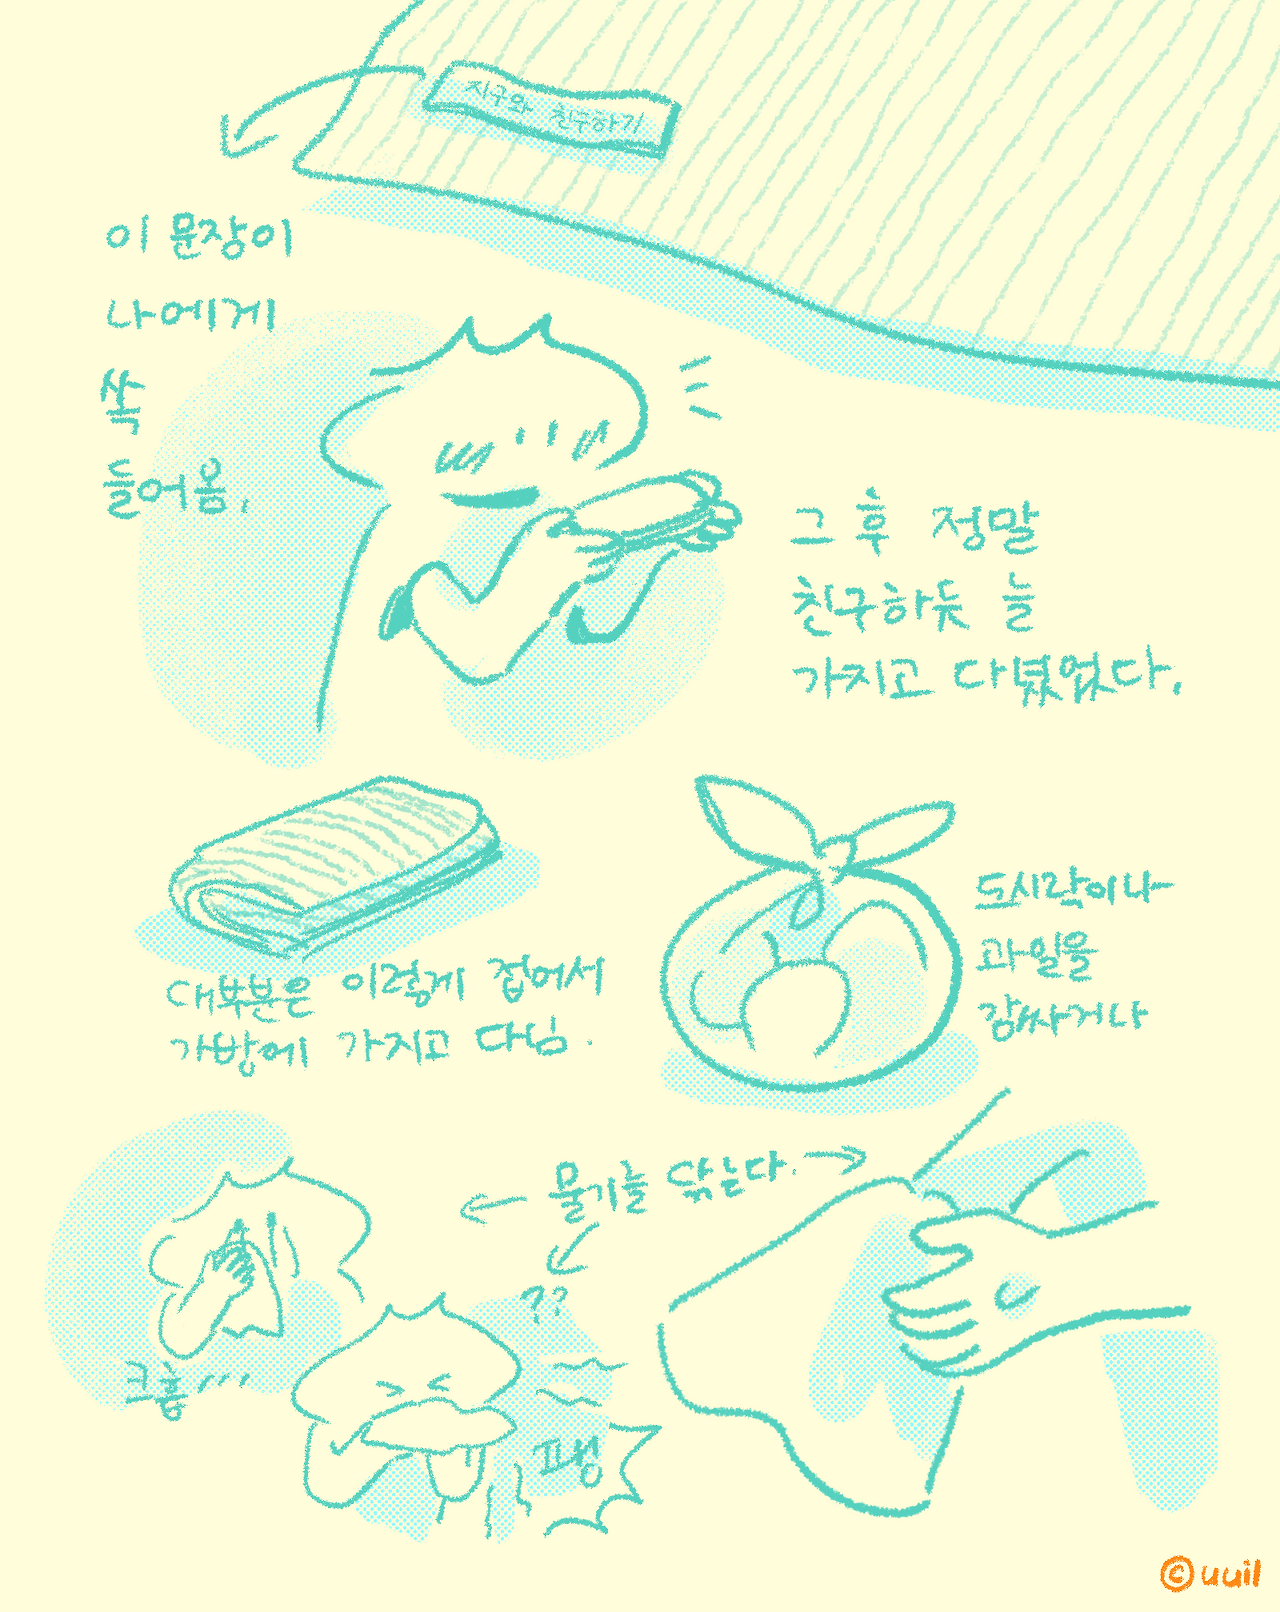 지구와 친구하기
이 문장이
나에게
쏙
들어옴.
그 후 정말
친구하듯 늘
가지고 다녔었다.
대부분은 이렇게 접어서
가방에 가지고 다님.
도시락이나
과일을
감싸거나
물기를 닦는다.
크흡...
??
프헹
©uuil